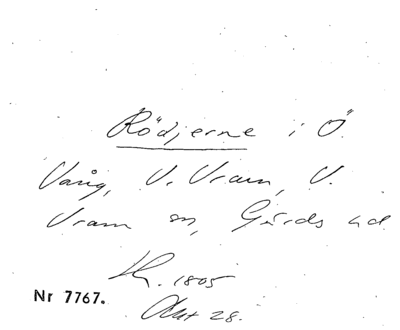 Rödjerne i Ö.
Vång, V. Vram, V.
Vram sn, Gärds hd
Lk. 1805
Nr 7767.
Akt 28.